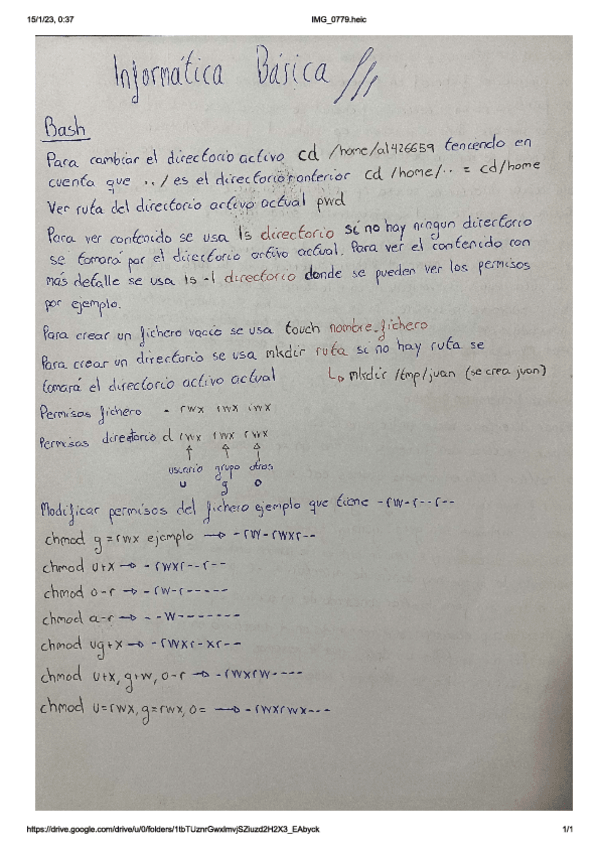 15/1/23, 0:37
IMG_0779.heic
Informática Básica
Bash
Para cambiar el directorio activo cd /home/al426659 teniendo en
cuenta que ../ es el directorio anterior cd /home/.. = cd/home
Ver ruta del directorio activo actual pwd
Para ver contenido se usa ls directorio si no hay ningun directorio
se tomará por el directorio activo actual. Para ver el contenido con
más detalle se usa ls -l directorio donde se pueden ver los permisos
por ejemplo.
Para crear un fichero vacio se usa touch nombre_fichero
Para crear un directorio se usa mkdir ruta si no hay ruta se
tomará el directorio activo actual ↳ mkdir /tmp/juan (se crea juan)
Permisos fichero - rwx rwx rwx
Permisos directorio d rwx rwx rwx
usuario grupo otros
u g o
Modificar permisos del fichero ejemplo que tiene -rw-r--r--
chmod g=rwx ejemplo → -rw-rwxr--
chmod u+x → -rwxr--r--
chmod o-r → -rw-r-----
chmod a-r → --w-------
chmod ug+x → -rwxr-xr--
chmod u+x, g+w, o-r → -rwxrw----
chmod u=rwx, g=rwx, o= → -rwxrwx---
https://drive.google.com/drive/u/0/folders/1tbTUznrGwxlmvjSZluzd2H2X3_EAbyck
1/1